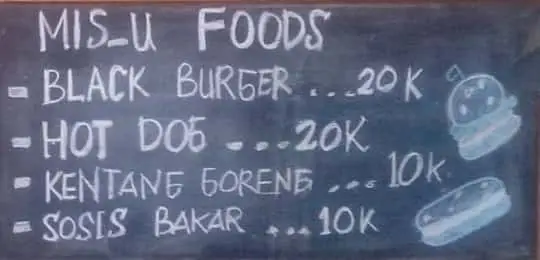 MIS-U FOODS
- BLACK BURGER ...20K
- HOT DOG ...20K
- KENTANG GORENG ...10K.
- SOSIS BAKAR ...10K